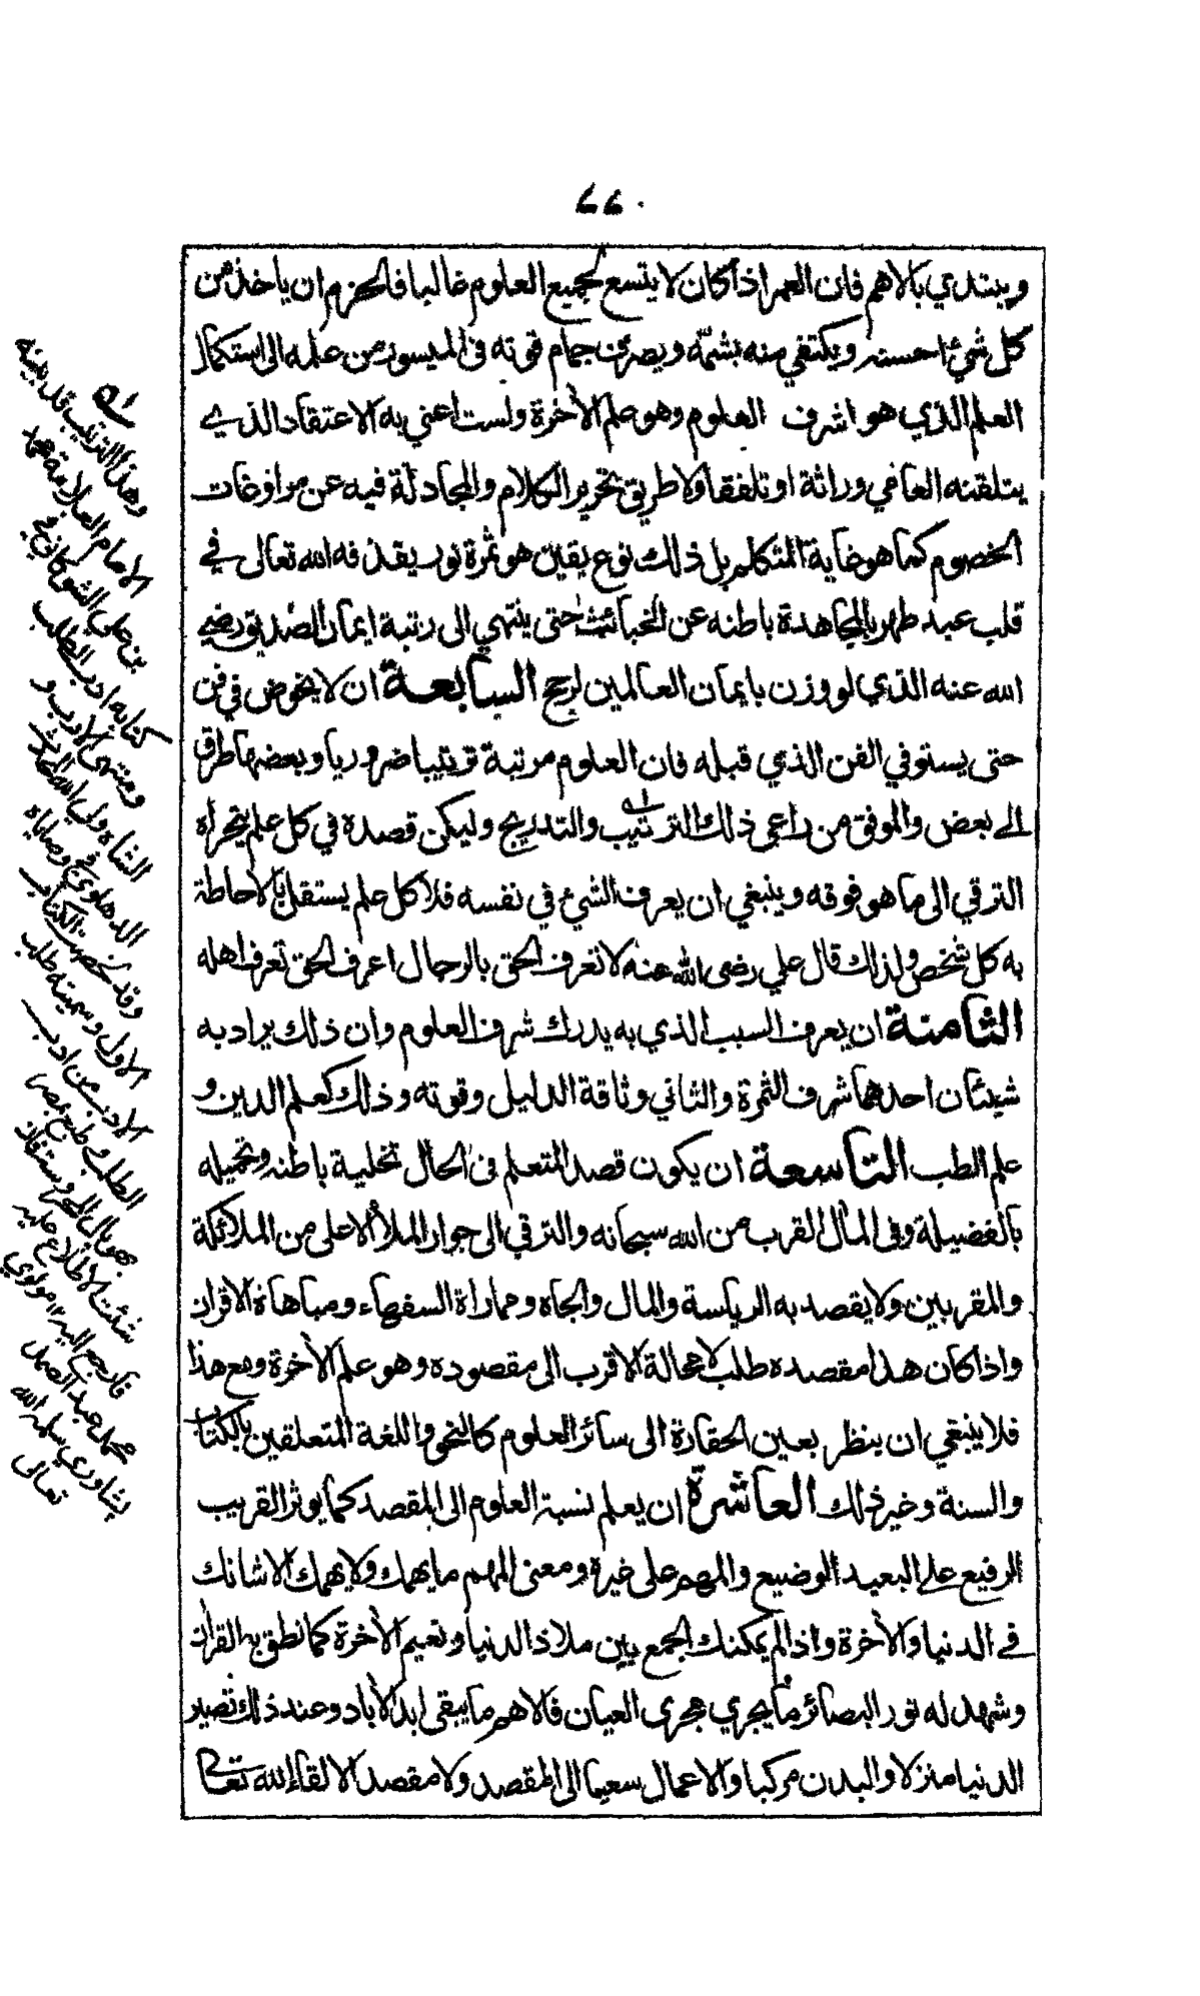 ٢٢٠
ويبتدي بالاهم فان العمر اذا كان لا يتسع لجميع العلوم غالبا فالحزم ان ياخذ من
كل شيء احسنه ويكتفي منه بشمّة ويصرف جمام قوته في الميسور من علمه الى استكمال
العلم الذي هو اشرف العلوم وهو علم الآخرة ولست اعني به الاعتقاد الذي
يتلقنه العامي وراثة او تلقفا ولا طريق تحرير الكلام والمجادلة فيه عن مراوغات
الخصوم كما هو غاية المتكلم بل ذلك نوع يقين هو ثمرة نور يقذفه الله تعالى في
قلب عبد طهر بالمجاهدة باطنه عن الخبائث حتى ينتهي الى رتبة ايمان الصديق رضي
الله عنه الذي لو وزن بايمان العالمين لرجح السابعة ان لا يخوض في فن
حتى يستوفي الفن الذي قبله فان العلوم مرتبة ترتيبا ضروريا وبعضها طرق
الى بعض والموفق من راعى ذلك الترتيب والتدريج وليكن قصده في كل علم يتحراه
الترقي الى ما هو فوقه وينبغي ان يعرف الشيء في نفسه فلا كل علم يستقل بالاحاطة
به كل شخص ولذلك قال علي رضى الله عنه لا تعرف الحق بالرجال اعرف الحق تعرف اهله
الثامنة ان يعرف السبب الذي به يدرك شرف العلوم وان ذلك يراد به
شيئان احدهما شرف الثمرة والثاني وثاقة الدليل وقوته وذلك كعلم الدين و
علم الطب التاسعة ان يكون قصد المتعلم في الحال تخلية باطنه وتجميله
بالفضيلة وفي المآل القرب من الله سبحانه والترقي الى جوار الملأ الاعلى من الملائكة
والمقربين ولا يقصد به الرياسة والمال والجاه ومماراة السفهاء ومباهاة الاقران
واذا كان هذا مقصده طلب لا محالة الاقرب الى مقصوده وهو علم الآخرة ومع هذا
فلا ينبغي ان ينظر بعين الحقارة الى سائر العلوم كالنحو واللغة المتعلقين بالكتاب
والسنة وغير ذلك العاشرة ان يعلم نسبة العلوم الى المقصد كما يوثر القريب
الرفيع على البعيد الوضيع والمهم على غيره ومعنى المهم ما يهمك ولا يهمك الا شانك
في الدنيا والآخرة واذا لم يمكنك الجمع بين ملاذ الدنيا ونعيم الآخرة كما نطق به القرآن
وشهد له نور البصائر ما يجري مجرى العيان فالاهم ما يبقى ابد الآباد وعند ذلك تصير
الدنيا منزلا والبدن مركبا والاعمال سعيا الى المقصد ولا مقصد الا لقاء الله تعالى
له
وهذا الترتيب قد بينه
الامام العلامة محمد
بن علي الشوكاني في
كتابه ادب الطلب
ومنتهى الادب و
الشاه ولي الله المحدث
الدهلوي في وصاياه
وقد لخصت الكتاب
الاول وسميته طلب
الادب من ادب
الطلب وطبع بمصر
بهوپال المحروسة فان
شئت الاطلاع عليه
فارجع اليه ١٢ مولوي
محمد عبد الصمد
پشاوري سلمه الله
تعالى